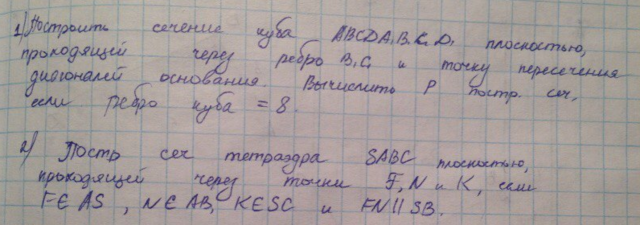 1) Построить сечение куба ABCDA₁B₁C₁D₁ плоскостью,
проходящей через ребро B₁C₁ и точку пересечения
диагоналей основания. Вычислить P постр. сеч,
если ребро куба = 8.
2) Постр сеч тетраэдра SABC плоскостью,
проходящей через точки F, N и K, если
F∈AS, N∈AB, K∈SC и FN || SB.